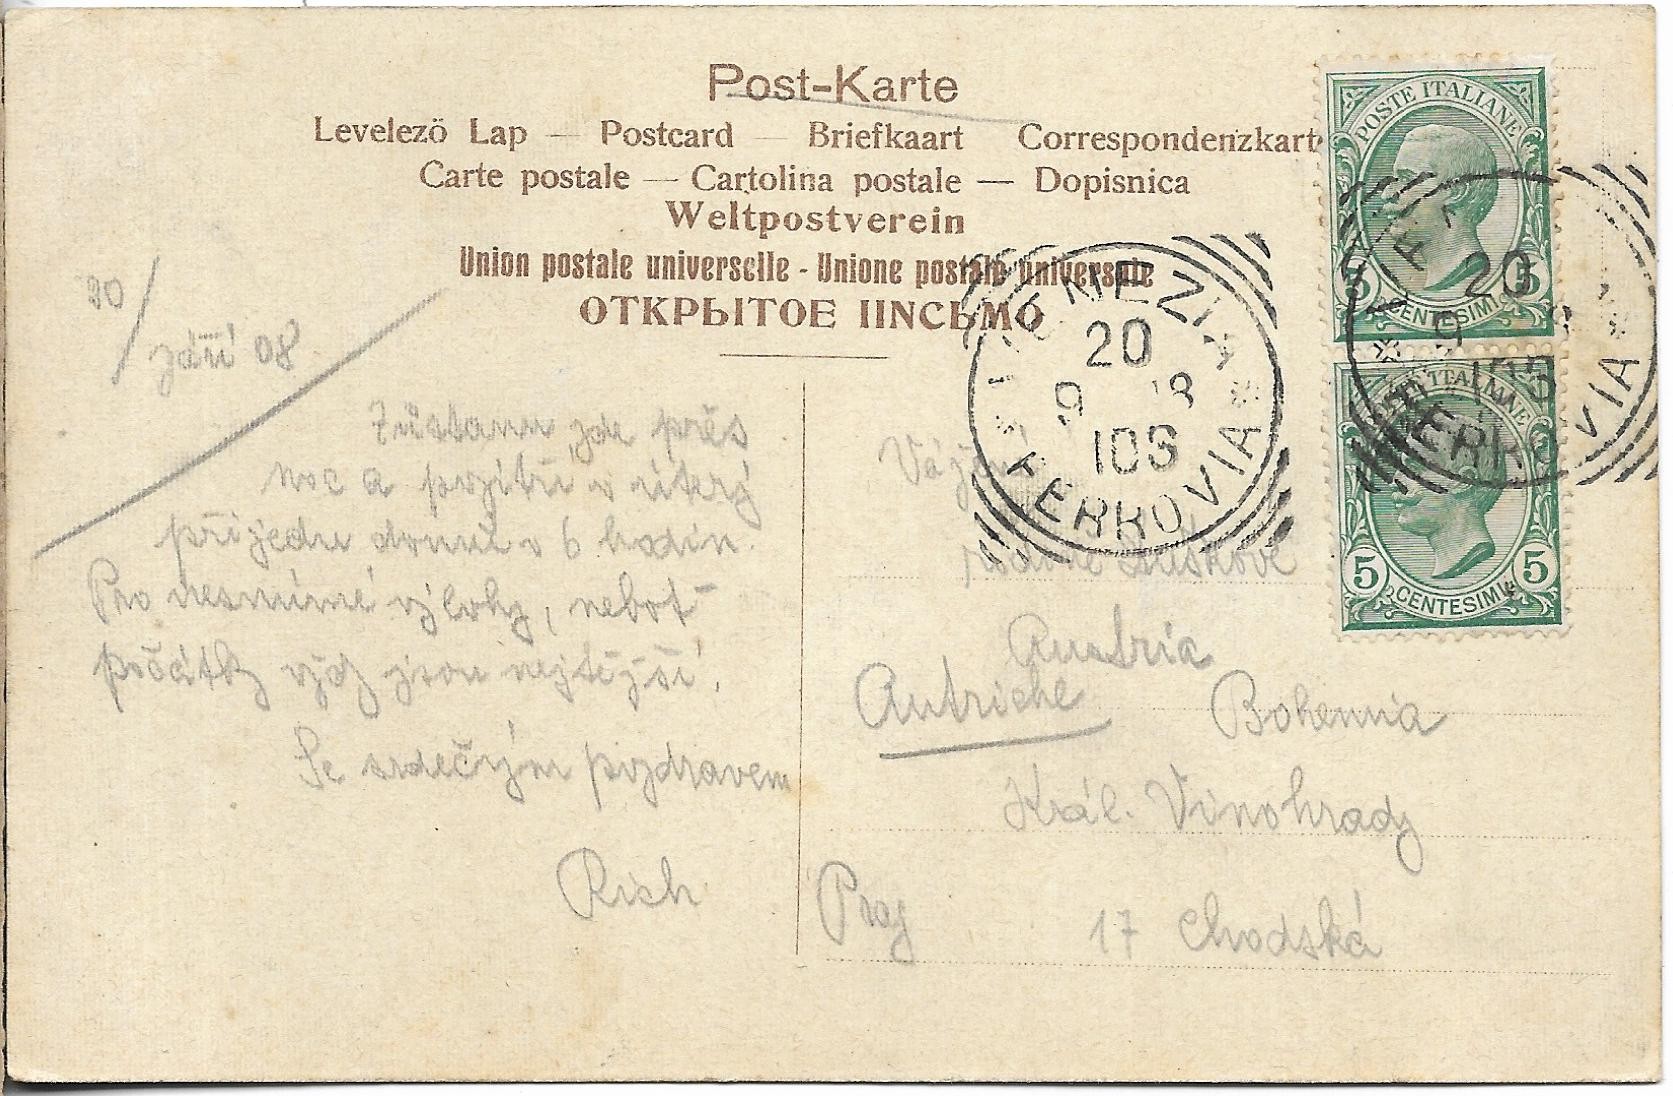 Post-Karte
Levelezö Lap — Postcard — Briefkaart Correspondenzkart
Carte postale — Cartolina postale — Dopisnica
Weltpostverein
Union postale universelle - Unione postale universale
ОТКРЫТОЕ IINСЬМО
POSTE ITALIANE
5 5
CENTESIMI
5 5
CENTESIMI
VENEZIA
20
9
FERROVIA
20
9
FERROVIA
20/
září 08
Zůstanu zde přes
noc a pozítří v úterý
přijedu domů v 6 hodin.
Pro nesmírné výlohy, neboť
počátky vždy jsou nejtěžší.
Se srdečným pozdravem
Rich
Vážené
rodině
Austria
Autriche Bohemia
Král. Vinohrady
Prag 17 Chodská